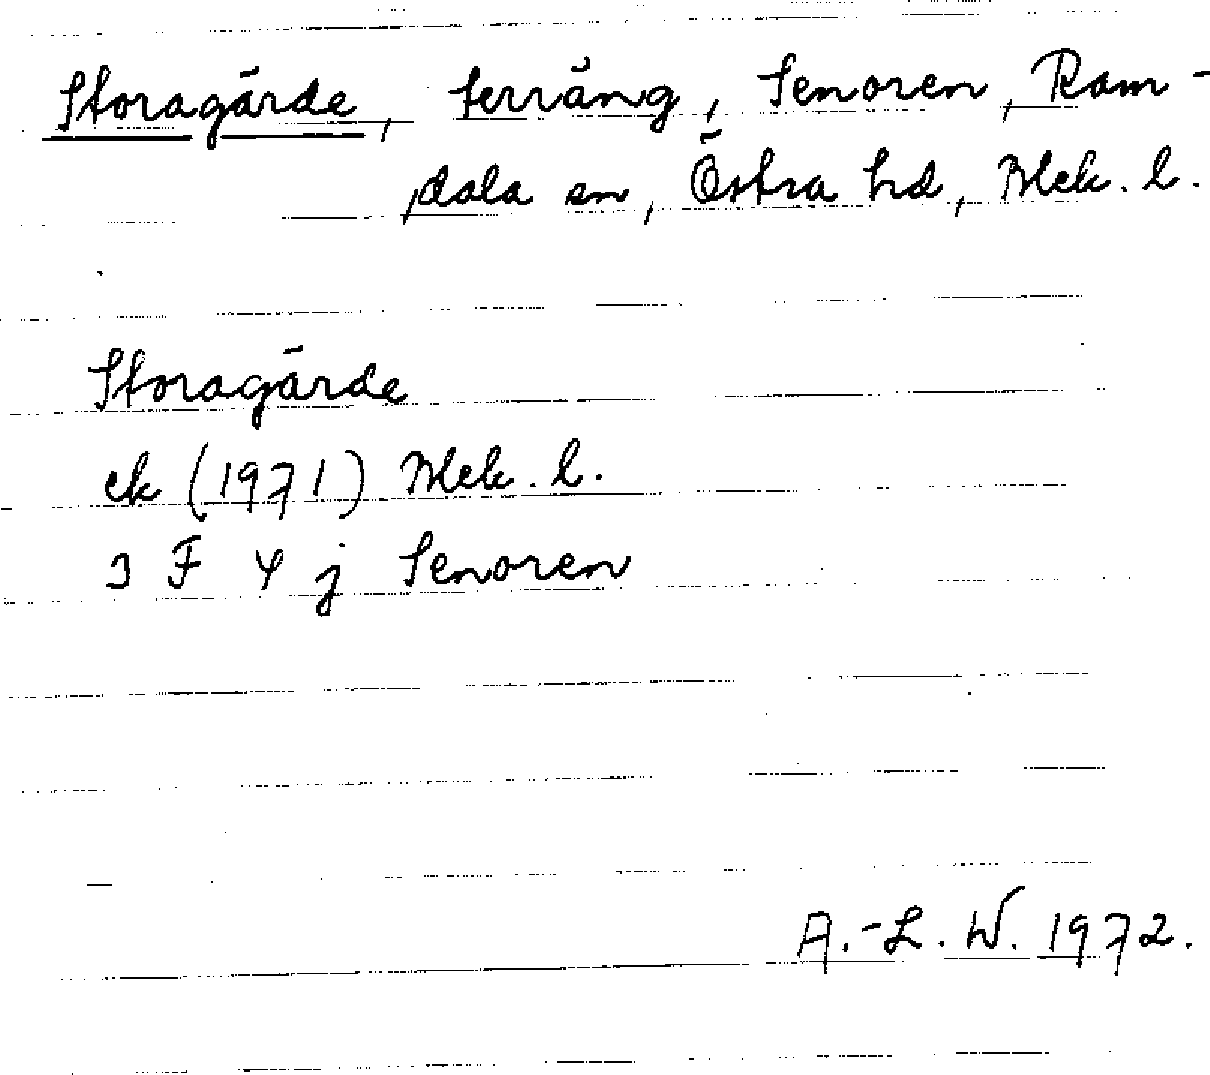 Storagärde, terräng, Senoren, Ram-
dala sn, Östra hd, Blek. l.
Storagärde
ek (1971) Blek. l.
3 F 4 j Senoren
A.-L. W. 1972.